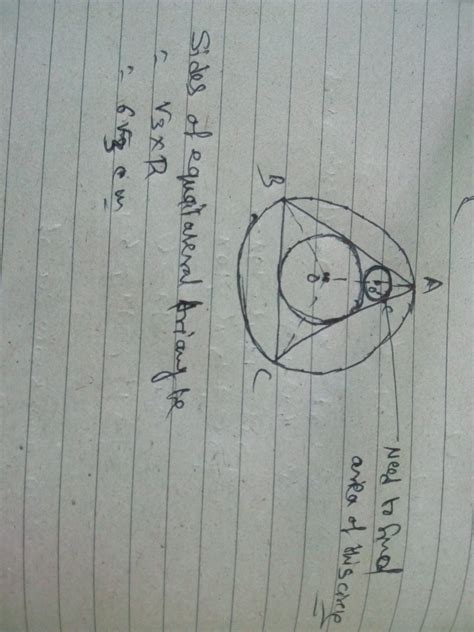 A
B
C
O
Need to find
area of this circle
Sides of equilateral triangle
= √3 × R
= 6√3 cm